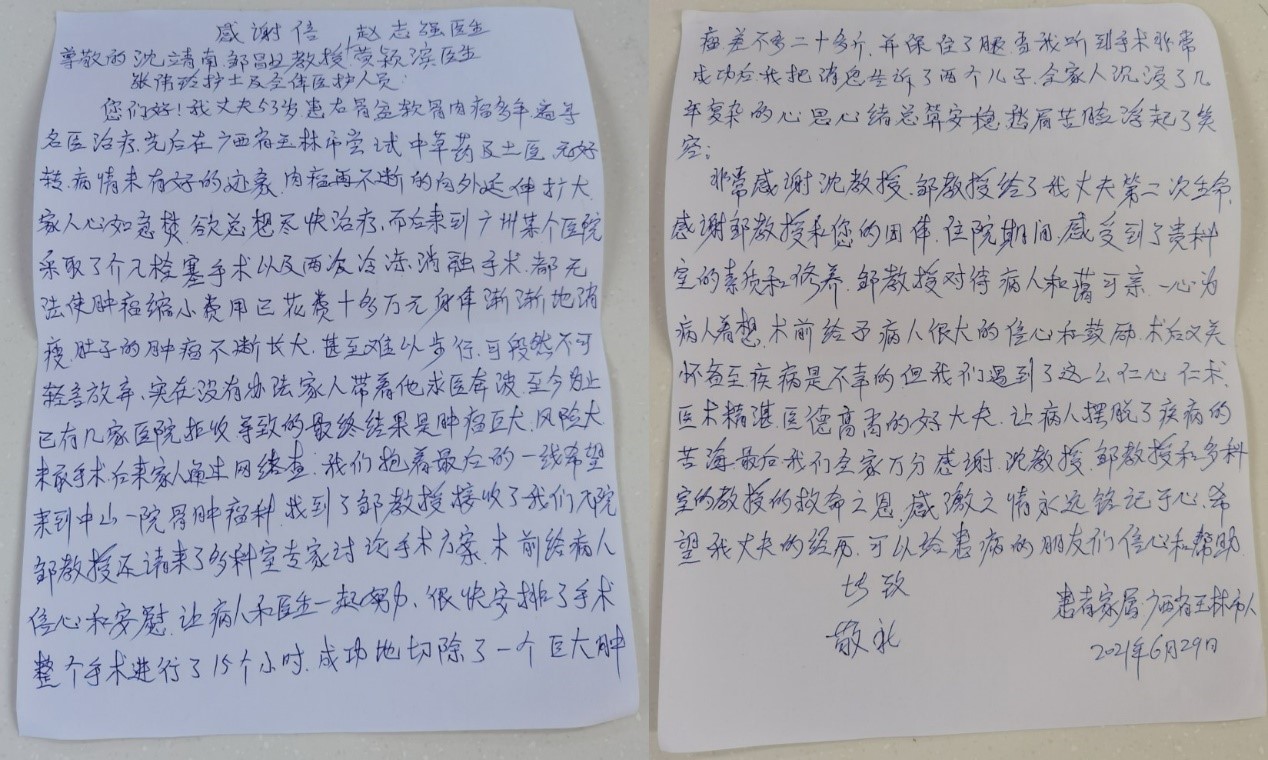 感谢信 赵志强医生
尊敬的沈靖南 邹昌业教授 黄颖滨医生
张伟玲护士及全体医护人员:
您们好!我丈夫53岁患右骨盆软骨肉瘤多年遍寻
名医治疗,先后在广西省玉林市尝试中草药及土医,无好
转,病情未有好的迹象,肉瘤再不断的向外延伸扩大
家人心如急焚,欲总想尽快治疗,而后来到广州某个医院
采取了介入栓塞手术以及两次冷冻消融手术,都无
法使肿瘤缩小费用已花费十多万元身体渐渐地消
瘦,肚子的肿瘤不断长大,甚至难以步行,可毅然不可
轻言放弃,实在没有办法家人带着他求医奔波,至今为止
已有几家医院拒收导致的最终结果是肿瘤巨大,风险大
未取手术,后来家人通过网络查,我们抱着最后的一线希望
来到中山一院骨肿瘤科,找到了邹教授,接收了我们入院
邹教授还请来了多科室专家讨论手术方案,术前给病人
信心和安慰,让病人和医生一起努力,很快安排了手术
整个手术进行了15个小时,成功地切除了一个巨大肿
瘤差不多二十多斤,并保住了腿当我听到手术非常
成功后我把消息告诉了两个儿子,全家人沉浸了几
年复杂的心思心绪总算安稳,愁眉苦脸浮起了笑
容;
非常感谢沈教授、邹教授给了我丈夫第二次生命,
感谢邹教授和您的团体,住院期间,感受到了贵科
室的素质和修养,邹教授对待病人和蔼可亲,一心为
病人着想,术前给予病人很大的信心和鼓励,术后又关
怀备至疾病是不幸的但我们遇到了这么仁心仁术,
医术精湛,医德高尚的好大夫,让病人摆脱了疾病的
苦海最后我们全家万分感谢,沈教授,邹教授和多科
室的教授的救命之恩,感激之情永远铭记于心,希
望我丈夫的经历,可以给患病的朋友们信心和帮助
此致
敬礼
患者家属:广西省玉林市人
2021年6月29日